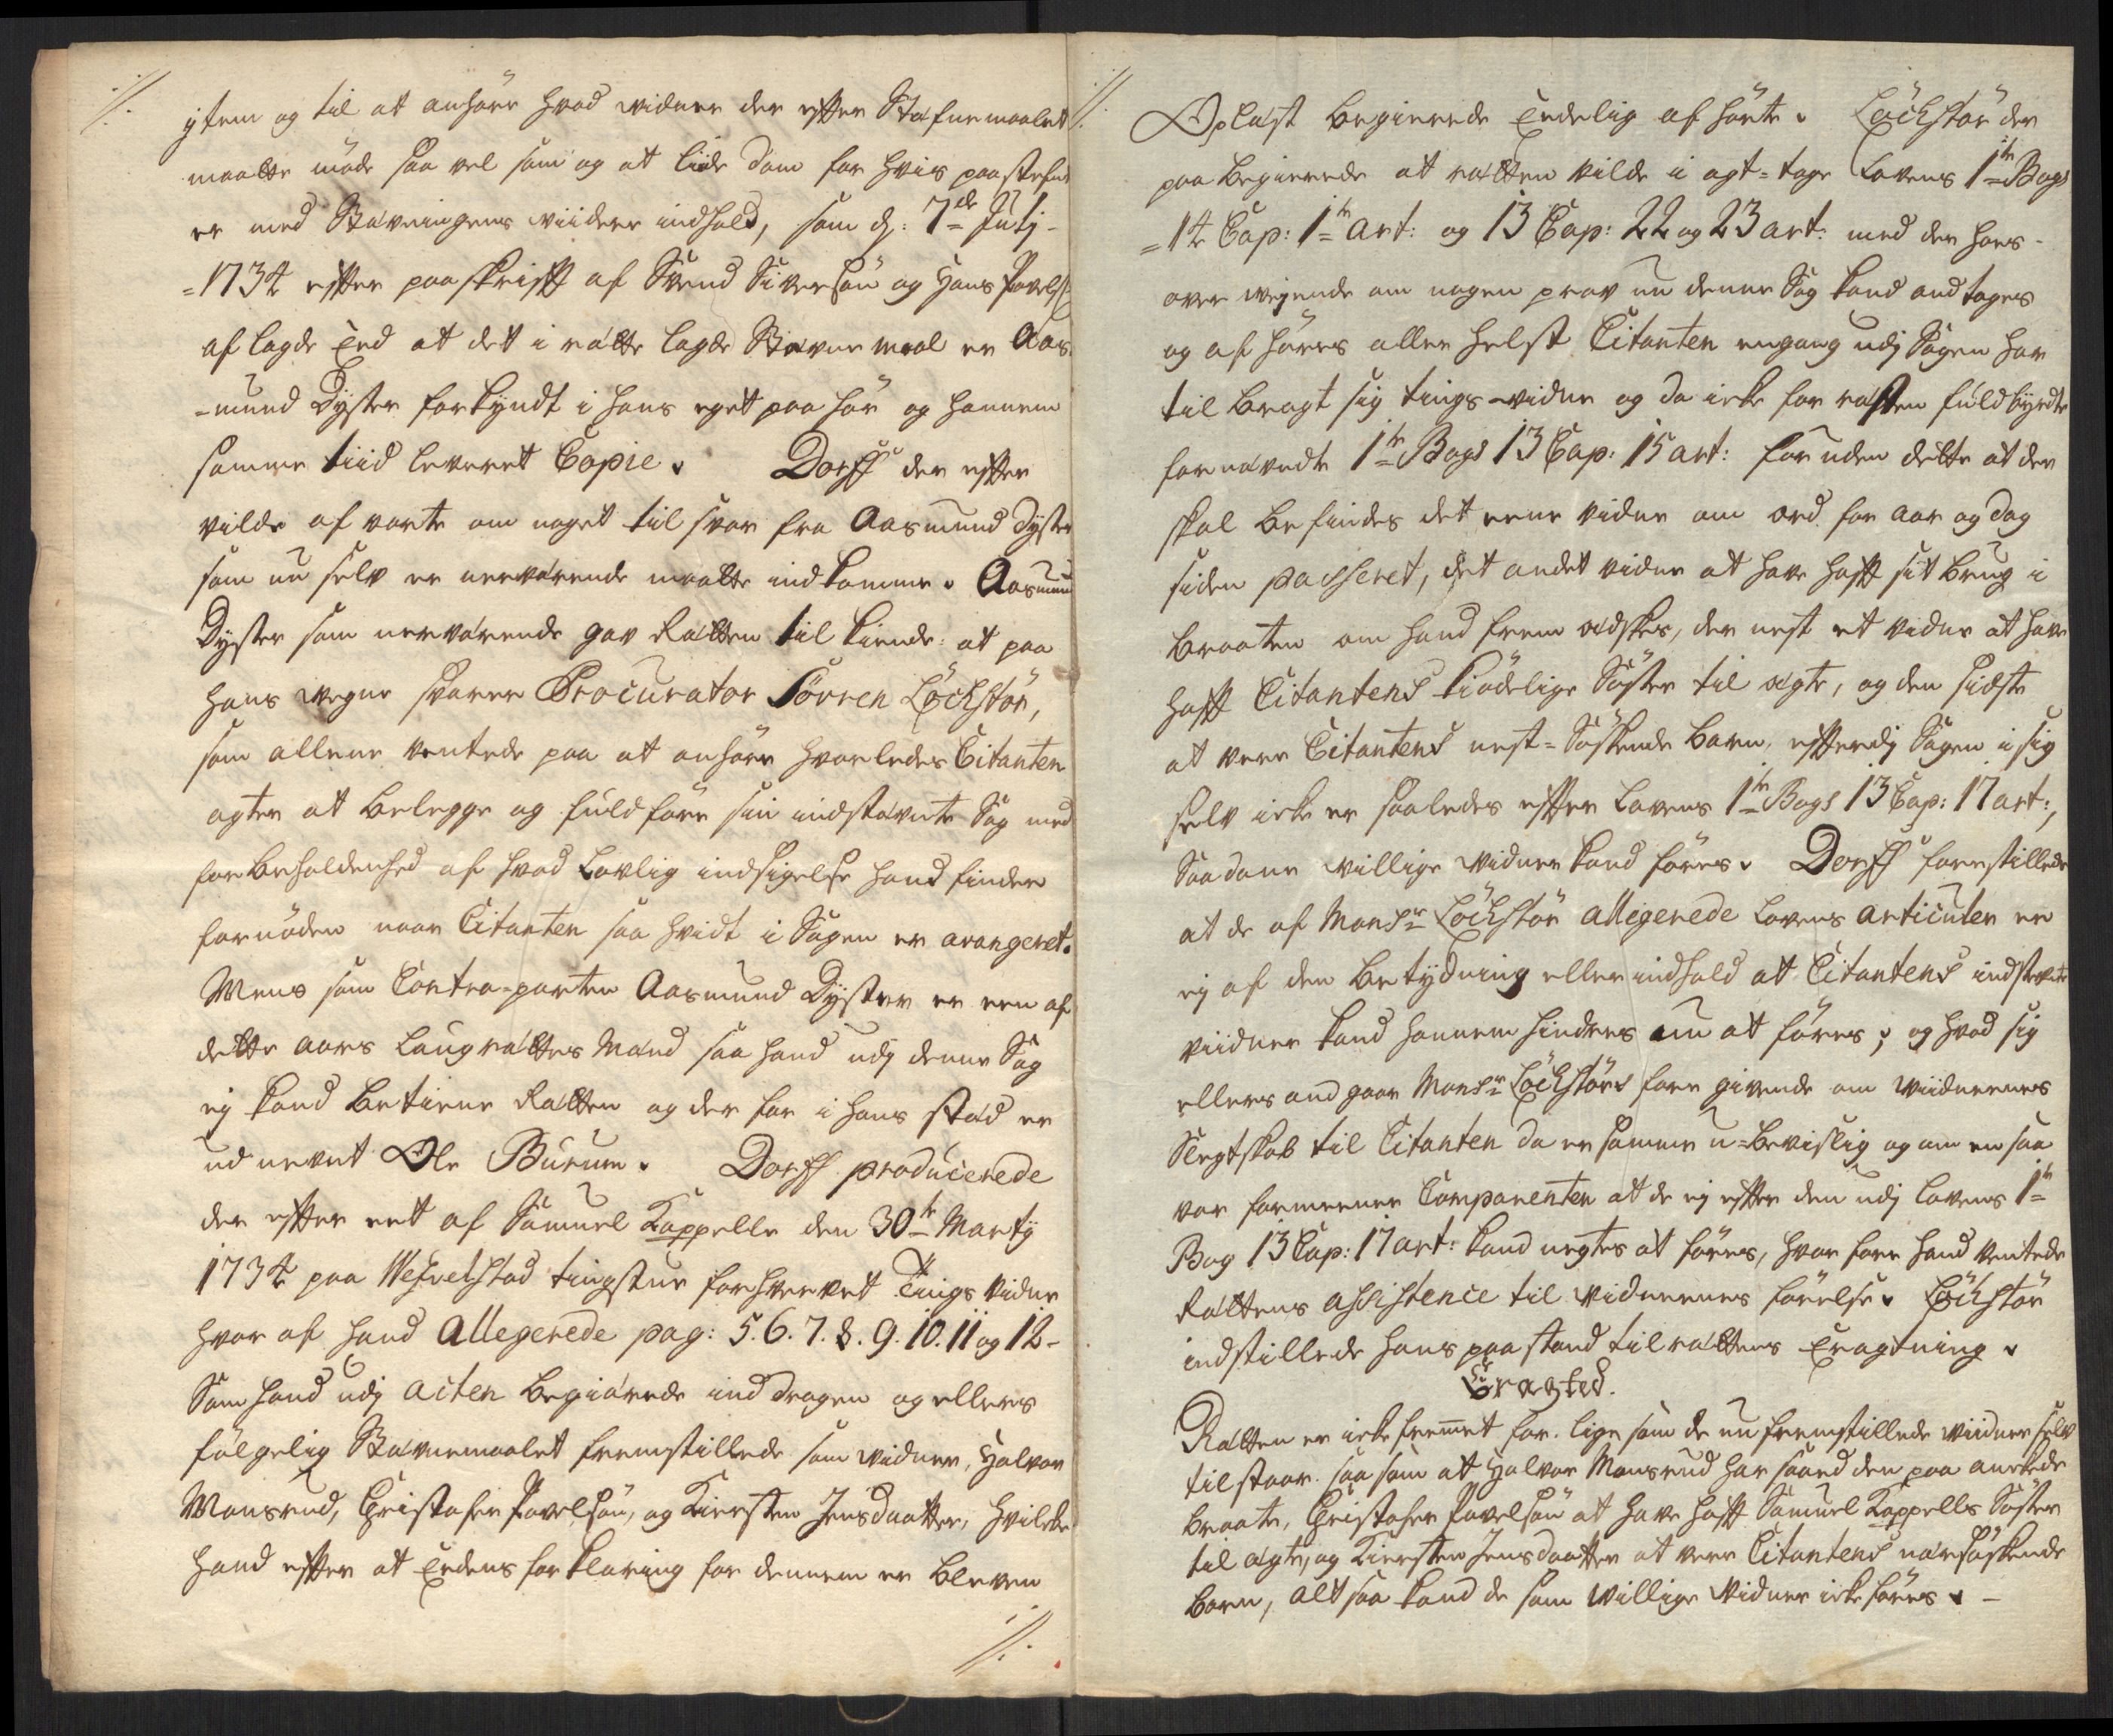 item og til at anhöre hvad vidner der efter Stefnemaalet
maatte möde saa vel som og at liide dom for hvis paastefnt
er med Stævningens viidere indhold, som d: 7de Julj
=1734 efter paaskrifft af Svend Siversön og Hans Povels:
aflagde Eed at det i rætte lagde Stævnemaal er Aas
=mund Dÿster forkÿndt i hans eget paahör og hannem
samme tiid leveret Copie. Dorff der efter
vilde afvarte om noget til svar fra Aasmund Dÿster
som nu selv er nerværende maatte indkomme. Aasmund
Dÿster som nerværende gav Rætten til kiende: at paa
hans vegne svarer Procurator Sörren Löchstör,
som allene ventede paa at anhöre hvorledes Citanten
agter at belegge og fuldföre sin indstævnte Sag med
forbeholdenhed af hvad Lovlig indsigelse hand finder
fornöden naar Citanten saa hvidt i Sagen er arangeret.
Mens som Contra=parten Aasmund Dÿster er een af
dette aars Laugrættes Mænd saa hand udj denne Sag
ej kand betiene Rætten og der for i hans stæd er
udnevnt Ole Burum. Dorff producerede
der efter eet af Samuel Kappelle den 30te Martÿ
1734 paa Wefvelstad tingstue forhvervet Tings vidne
hvor af hand allegerede pag: 5. 6. 7. 8. 9. 10. 11 og 12-
Som hand udj acten begiærede inddragen og ellers
fölgelig Stævnemaalet fremstillede som vidner, Halvor
Monsrud, Christofer Povelsön, og Kiersten Jensdaatter, hvilcke
hand efter at Eedens forklaring for dennem er bleven
%.
%.
%.
Oplæst begierede Eedelig afhörte. Löchstör der
paa begierede at rætten vilde i agt=tage Lovens 1te Bogs
=14 Cap: 1te art: og 13 Cap: 22 og 23 art: med der hoes-
overvejende om nogen prov nu denne Sag kand andtages
og afhöres aller helst Citanten engang udj Sagen har
tilbragt sig tings=vidne og da icke for rætten fuldbÿrdte
fornævnte 1te Bogs 13 Cap: 15 art: foruden dette at der
skal befindes det eene vidne om ord for aar og dag
siden passeret, det andet vidne at have hafft sit brug i
braaten om hand frem ædskes, der nest et vidne at have
hafft Citantens kiödelige Söster til ægte, og den sidste
at vere Citantens nest=Söskende barn, efterdj Sagen i sig
selv icke er saaledes efter Lovens 1te Bogs 13 Cap: 17 art:,
Saadane villige vidner kand föres. Dorff forestillede
at de af Monsr: Löchstör allegerede Lovens articuler er
ej af den betÿdning eller indhold at Citantens indstevnte
viidner kand hannem hindres nu at föres; og hvad sig
ellers andgaar Monsr: Löchstörs foregivende om viidnernes
Slegtskab til Citanten da er samme u=bevislig og om en saa
var formeener Comparenten at de ej efter den udj Lovens 1te
Bog 13 Cap: 17 art: kand negtes at föres, hvor fore hand ventede
Rættens assistence til vidnernes förelse. Löchstör
indstillede hans paastand til rættens Eragtning.
Eragted.
Rætten er icke fremmet for. lige som de nu fremstillede viidner selv
tilstaar. saa som at Halvor Monsrud har saaed den paa anckede
braate, Christofer Povelsön at have hafft Samuel Kappells Söster
til ægte, og Kiersten Jensdaatter at vere Citantens nærsöskende
barn, altsaa kand de som villige vidner icke föres. -